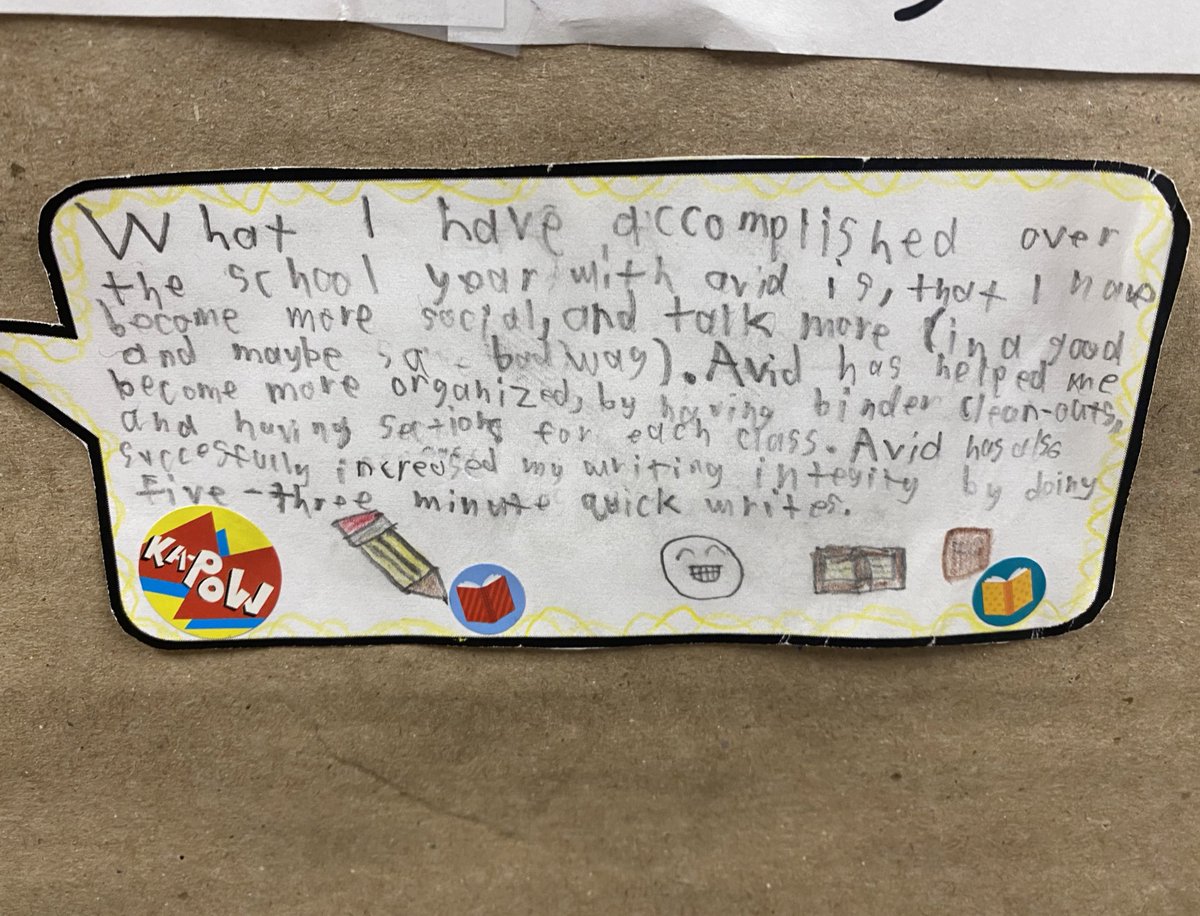 What I have accomplished over
the school year with avid is, that I have
become more social, and talk more (in a good
and maybe a bad way). Avid has helped me
become more organized, by having binder clean-outs,
and having sections for each class. Avid has also
successfully increased my writing integity by doing
five-three minute quick writes.
KA-POW